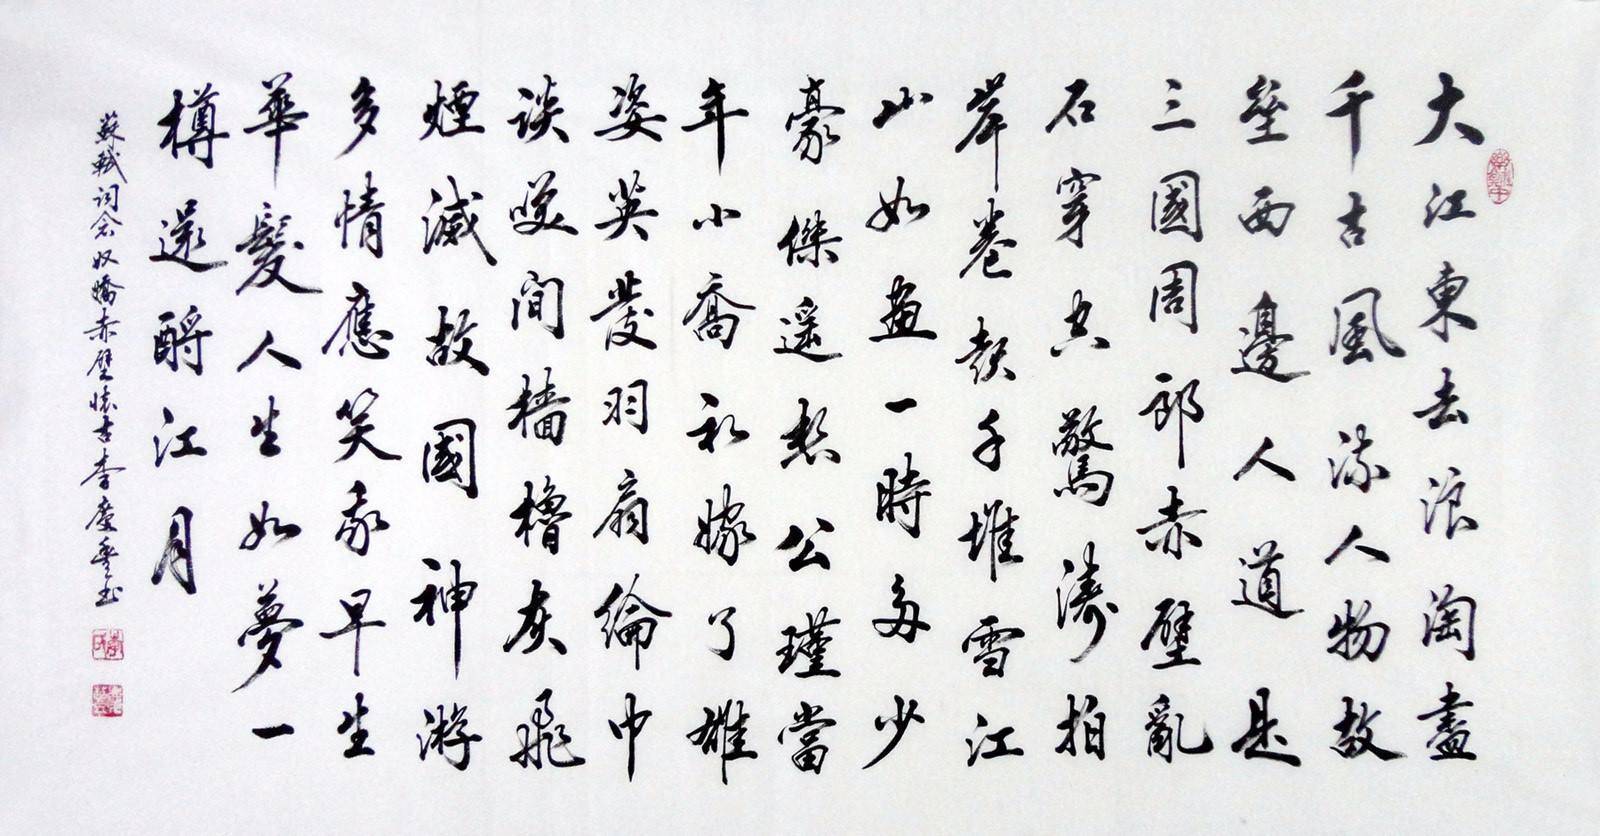 大江東去浪淘盡
千古風流人物故
壘西邊人道是
三國周郎赤壁亂
石穿空驚濤拍
岸卷起千堆雪江
山如畫一時多少
豪傑遥想公瑾當
年小喬初嫁了雄
姿英發羽扇綸巾
談笑間檣櫓灰飛
煙滅故國神游
多情應笑我早生
華髮人生如夢一
樽還酹江月
蘇軾詞念奴嬌赤壁懷古李慶